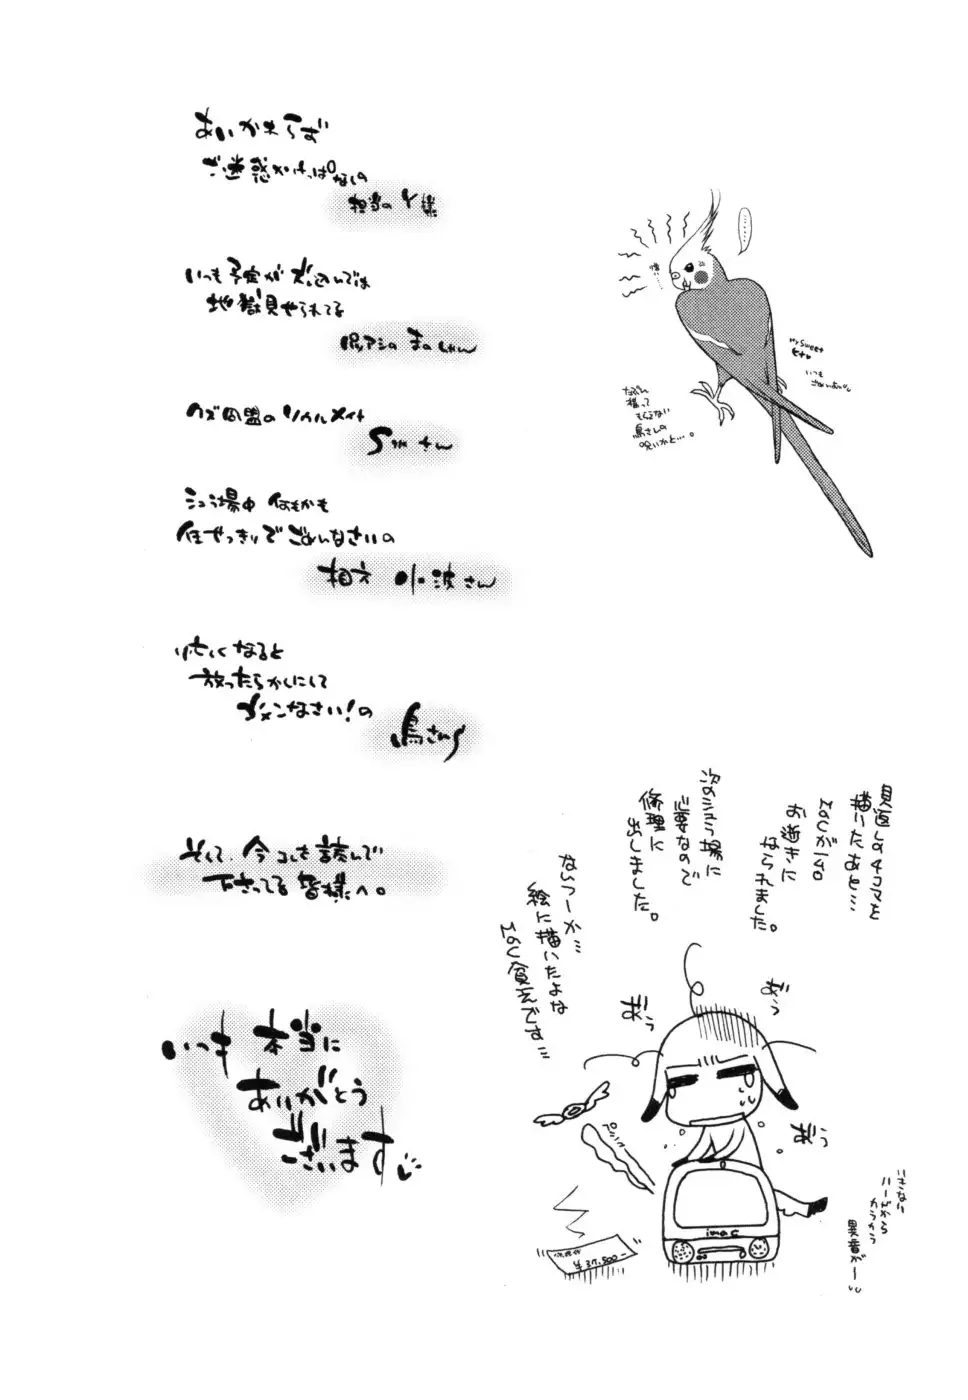 あいかわらず
ご迷惑かけっぱなしの
担当のY様
いつも予定が
地獄見せられてる
眠アシの まのしゃん
クズ同盟のソウルメイト
さん
シュラ場中 何もかも
任せっきりでごめんなさいの
相方 小波さん
忙しくなると
放ったらかしにして
ゴメンなさい!の
鳥さん
そして、今コレを読んで
下さってる皆様へ。
いつも本当に
ありがとう
ございます
……
憎い…
My Sweet
いつも
ごめんね
なぶん
構って
もらえない
鳥さんの
呪いかと…。
見返しの4コマを
描いたあと…
Macが
お逝きに
なられました。
次のシュラ場に
必要なので
修理に
出しました。
ならつーか…
絵に描いたよな
Mac貧乏です…
あうっ
あうっ
あうっ
imac
¥37,500-
いきなり
ハードから
カラカラ
異音がー